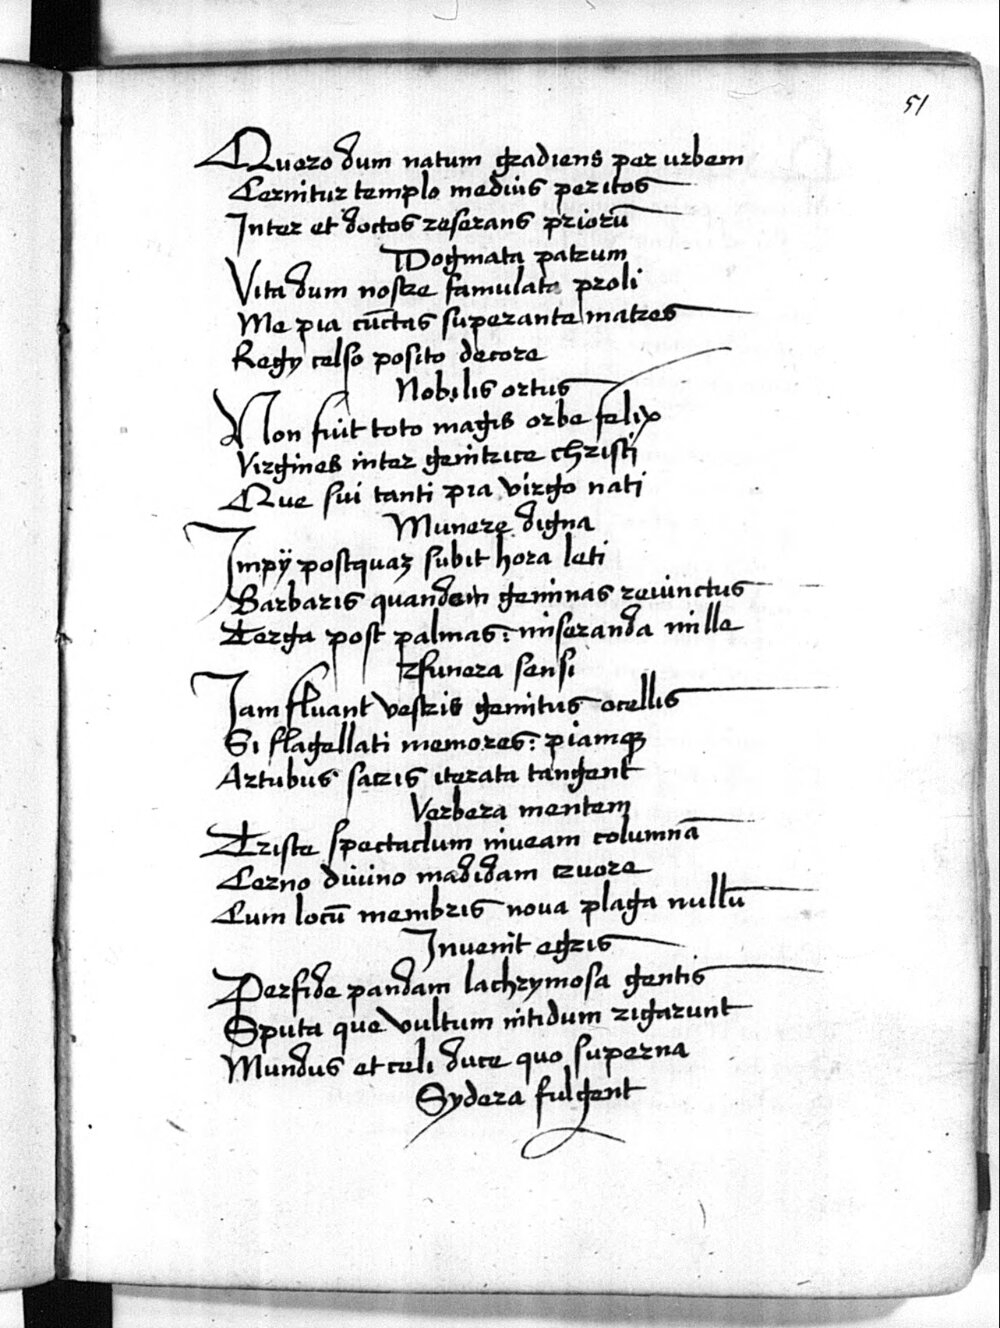 51
Quero dum natum gradiens per urbem
Cernitur templo medius peritos
Inter et doctos reserans priorū
Dogmata patrum
Vita dum nostre famulata proli
Me pia cūctas superante matres
Regy celso posito decore
Nobilis ortus
Non fuit toto magis orbe felix
Virgines inter genitrice christi
Que fui tanti pia virgo nati
Munere digna
Impÿ postquaz subit hora leti
Barbaris quandem geminas reuinctus
Terga post palmas: miseranda mille
funera sensi
Iam fluant vestris gemitus ocellis
Si flagellati memores: piamqꝫ
Artubus sacris iterata tangent
Verbera mentem
Triste spectaclum niueam columnā
Cerno diuino madidam cruore
Cum locū membris noua plaga nullū
Inuenit egris
Perfide pandam lachrymosa gentis
Sputa que vultum nitidum rigarunt
Mundus et celi duce quo superna
Sydera fulgent